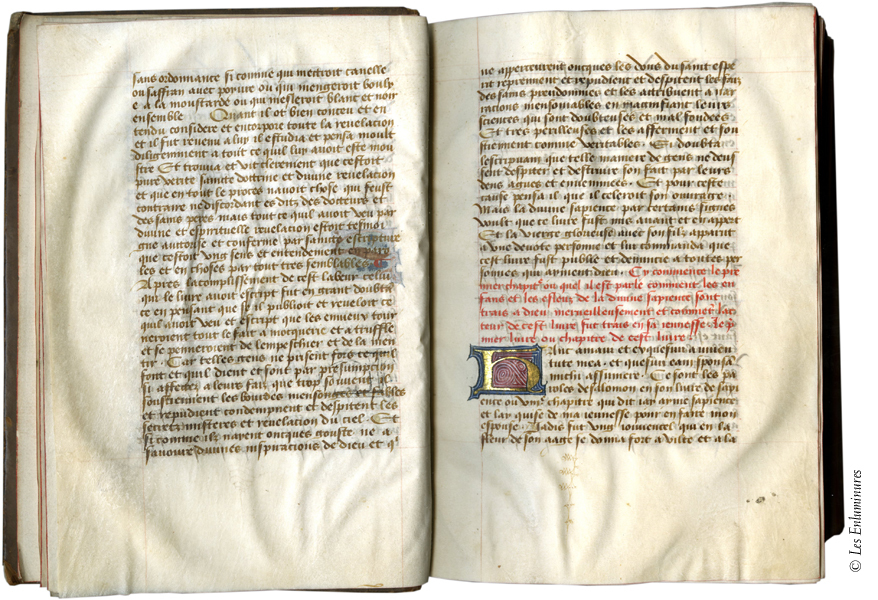 sans ordonnance si comme qui mettroit canelle
ou saffran avec poyure ou qui mengeroit bouly
e a la moustarde ou qui mesleroit blanc et noir
ensemble Quant il ot bien conceu et en
tendu considere et encorpore toute la revelacion
et il fut revenu a luy il estudia et pensa moult
diligemment a tout ce quil luy avoit este mou
stre Et trouva et vit clerement que cestoit
pure verite saincte doctrine et divine revelacion
et que en tout le proces navoit chose qui feust
contraire ne discordant es ditz des docteurs et
des sains peres mais tout ce quil avoit veu par
divine et espirituelle revelacion estoit tesmoi
gne auctorise et conferme par saincte escripture
que cestoit ung sens et entendement
les et en choses par tout tres semblables
Apres lacomplissement de cest labeur celui
qui le livre avoit escript fut en grant doubta
ce en pensant que sil publioit et reveloit ce
quil avoit veu et escript que les envieux tour
neroient tout le fait a mocquerie et a truffle
et se penneroient de lempeschier et de la men
tir Car telles gens ne prisent fors ce quil
font et quil dient et sont par presumpcion
si affectez a leurs fais que trop souvent ilz
soustiennent les bourdes mensonges et fables
et repudient condempnent et despitent les
secretz misteres et revelacion du ciel Et
si comme ilz nayent oncques gouste ne a
savoure divines inspiracions de dieu et q
ne apperceurent oncques les dons du saint espe
rit reprennent et repudient et despitent les faiz
des sains preudommes et les attribuent a nar
racions mensonables en magnifiant leurs
sciences qui sont doubteuses et mal fondees
Et tres perilleuses et les afferment et sou
stiennent comme veritables Si doubta
lescripvant que telle maniere de gens ne deus
sent despiter et destruire son fait par leurs
dens agues et envenimees Et pour ceste
cause pensa il que il celeroit son ouvrage
Mais la divine sapience par certains signes
voult que ce livre fust mis avant et en appert
Et la vierge glorieuse avec son filz apparut
a une devote personne et lui commanda que
cest livre fust publie et denuncie a toutes per
sonnes qui ayment dieu Cy commence le pre
mier chapitre ou quel il est parle comment les en
fans et les esleuz de la divine sapience sont
traiz a dieu merveilleusement et comment lac
teur de cest livre fut trait en sa jeunesse le p
mier livre ou chapitre de cest livre
Hanc amavi et exquisivi a juven
tute mea et quesivi eam sponsam
michi assumere Ce sont les pa
roles de salomon en son livre de sapi
ence ou viiie chapitre qui dit iay ayme sapience
et lay quise de ma jeunesse pour en faire mon
espouse Jadis fut ung jouvencel qui en la
fleur de son aage se donna fort a vilte et a la
© Les Enluminures